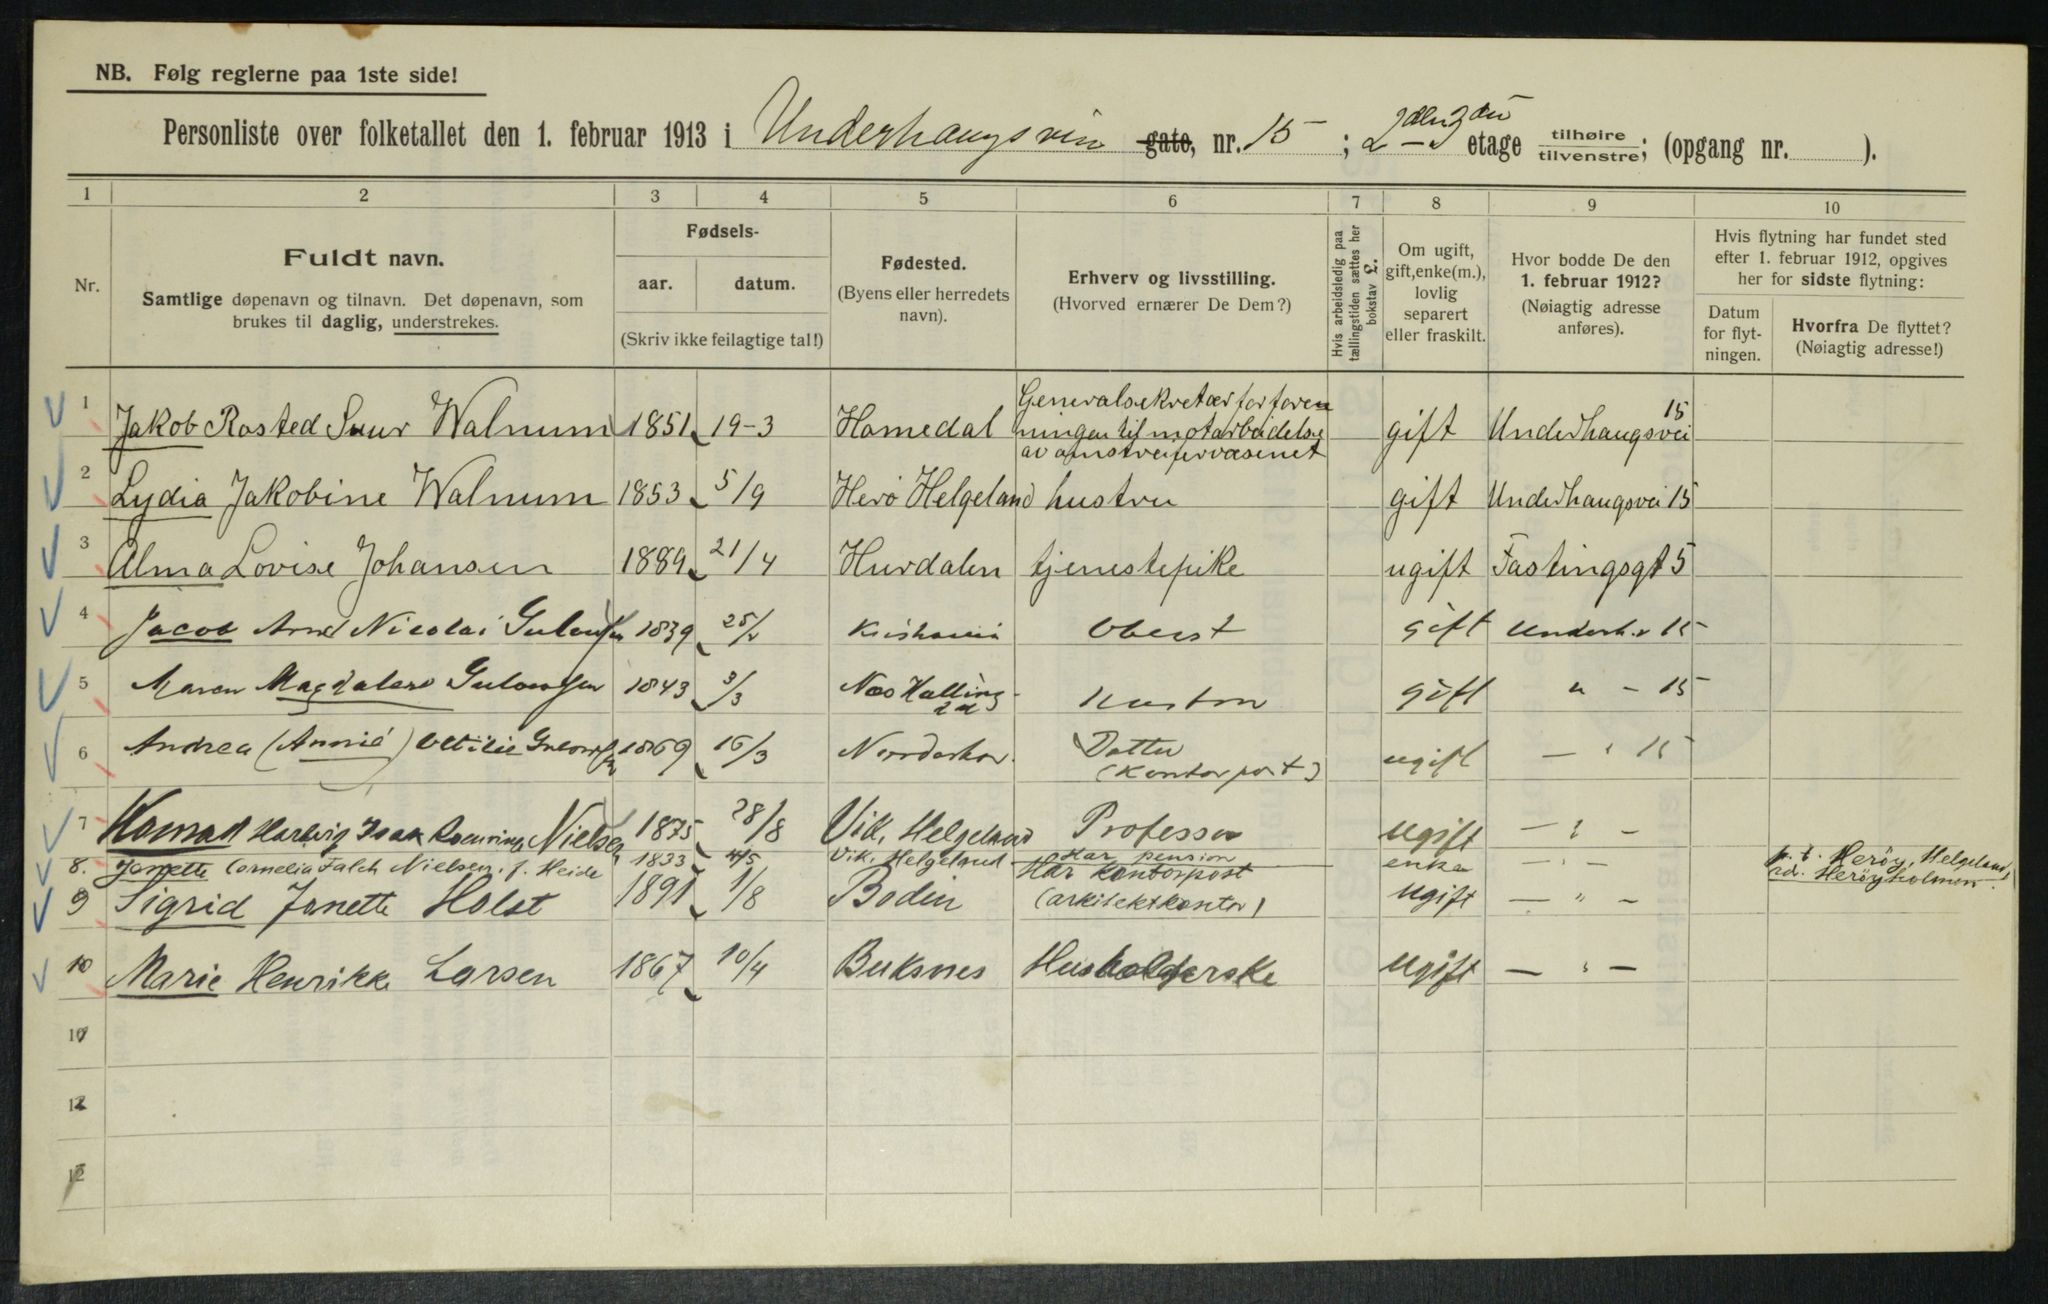 NB. Følg reglerne paa 1ste side!
Personliste over folketallet den 1. februar 1913 i Underhaugsveien gate, nr. 15 ; 2-3 etage tilhøire tilvenstre; (opgang nr. ).
1 2 3 4 5 6 7 8 9 10
Nr.
Fuldt navn.
Samtlige døpenavn og tilnavn. Det døpenavn, som
brukes til daglig, understrekes.
Fødsels-
aar. datum.
(Skriv ikke feilagtige tal!)
Fødested.
(Byens eller herredets
navn).
Erhverv og livsstilling.
(Hvorved ernærer De Dem?)
Hvis arbeidsledig paa
tællingstiden sættes her
bokstav L.
Om ugift,
gift, enke(m.),
lovlig
separert
eller fraskilt.
Hvor bodde De den
1. februar 1912?
(Nøiagtig adresse
anføres).
Hvis flytning har fundet sted
efter 1. februar 1912, opgives
her for sidste flytning:
Datum
for flyt-
ningen.
Hvorfra De flyttet?
(Nøiagtig adresse!)
1 Jakob Rosted Walnum 1851 19-3 Homedal Generalsekretær for foreningen til motarbeidelse av omstreifervæsenet gift Underhaugsvei 15
2 Lydia Jakobine Walnum 1853 5/9 Herö Helgeland hustru gift Underhaugsvei 15
3 Alma Lovise Johansen 1889 21/4 Hurdalen tjenestepike ugift Fastingsgt 5
4 Jacob Nicolai 1839 Kristiania Oberst gift Underh.v 15
5 Maren Magdalene 1843 3/3 Næs Halling- Hustru gift " - 15
6 Andrea (Annie) Otilie 1869 16/3 Norderhov Datter (Kontorpost) ugift — " 15
7 Konrad Hartvig Isak Rosenvinge Nielsen 1875 28/8 Vik, Helgeland Professor ugift — " —
8. Janette Cornelia Falch Nielsen, f. Heide 1833 4/5 Vik, Helgeland Har pension enke — " — p.t. Herøy, Helgeland, Herøyholmen.
9 Sigrid Janette Holst 1891 1/8 Bodin Har kontorpost (arkitektkontor) ugift — " —
10 Marie Henrikke Larsen 1867 10/4 Buksnes Husholderske ugift — " —
11
12